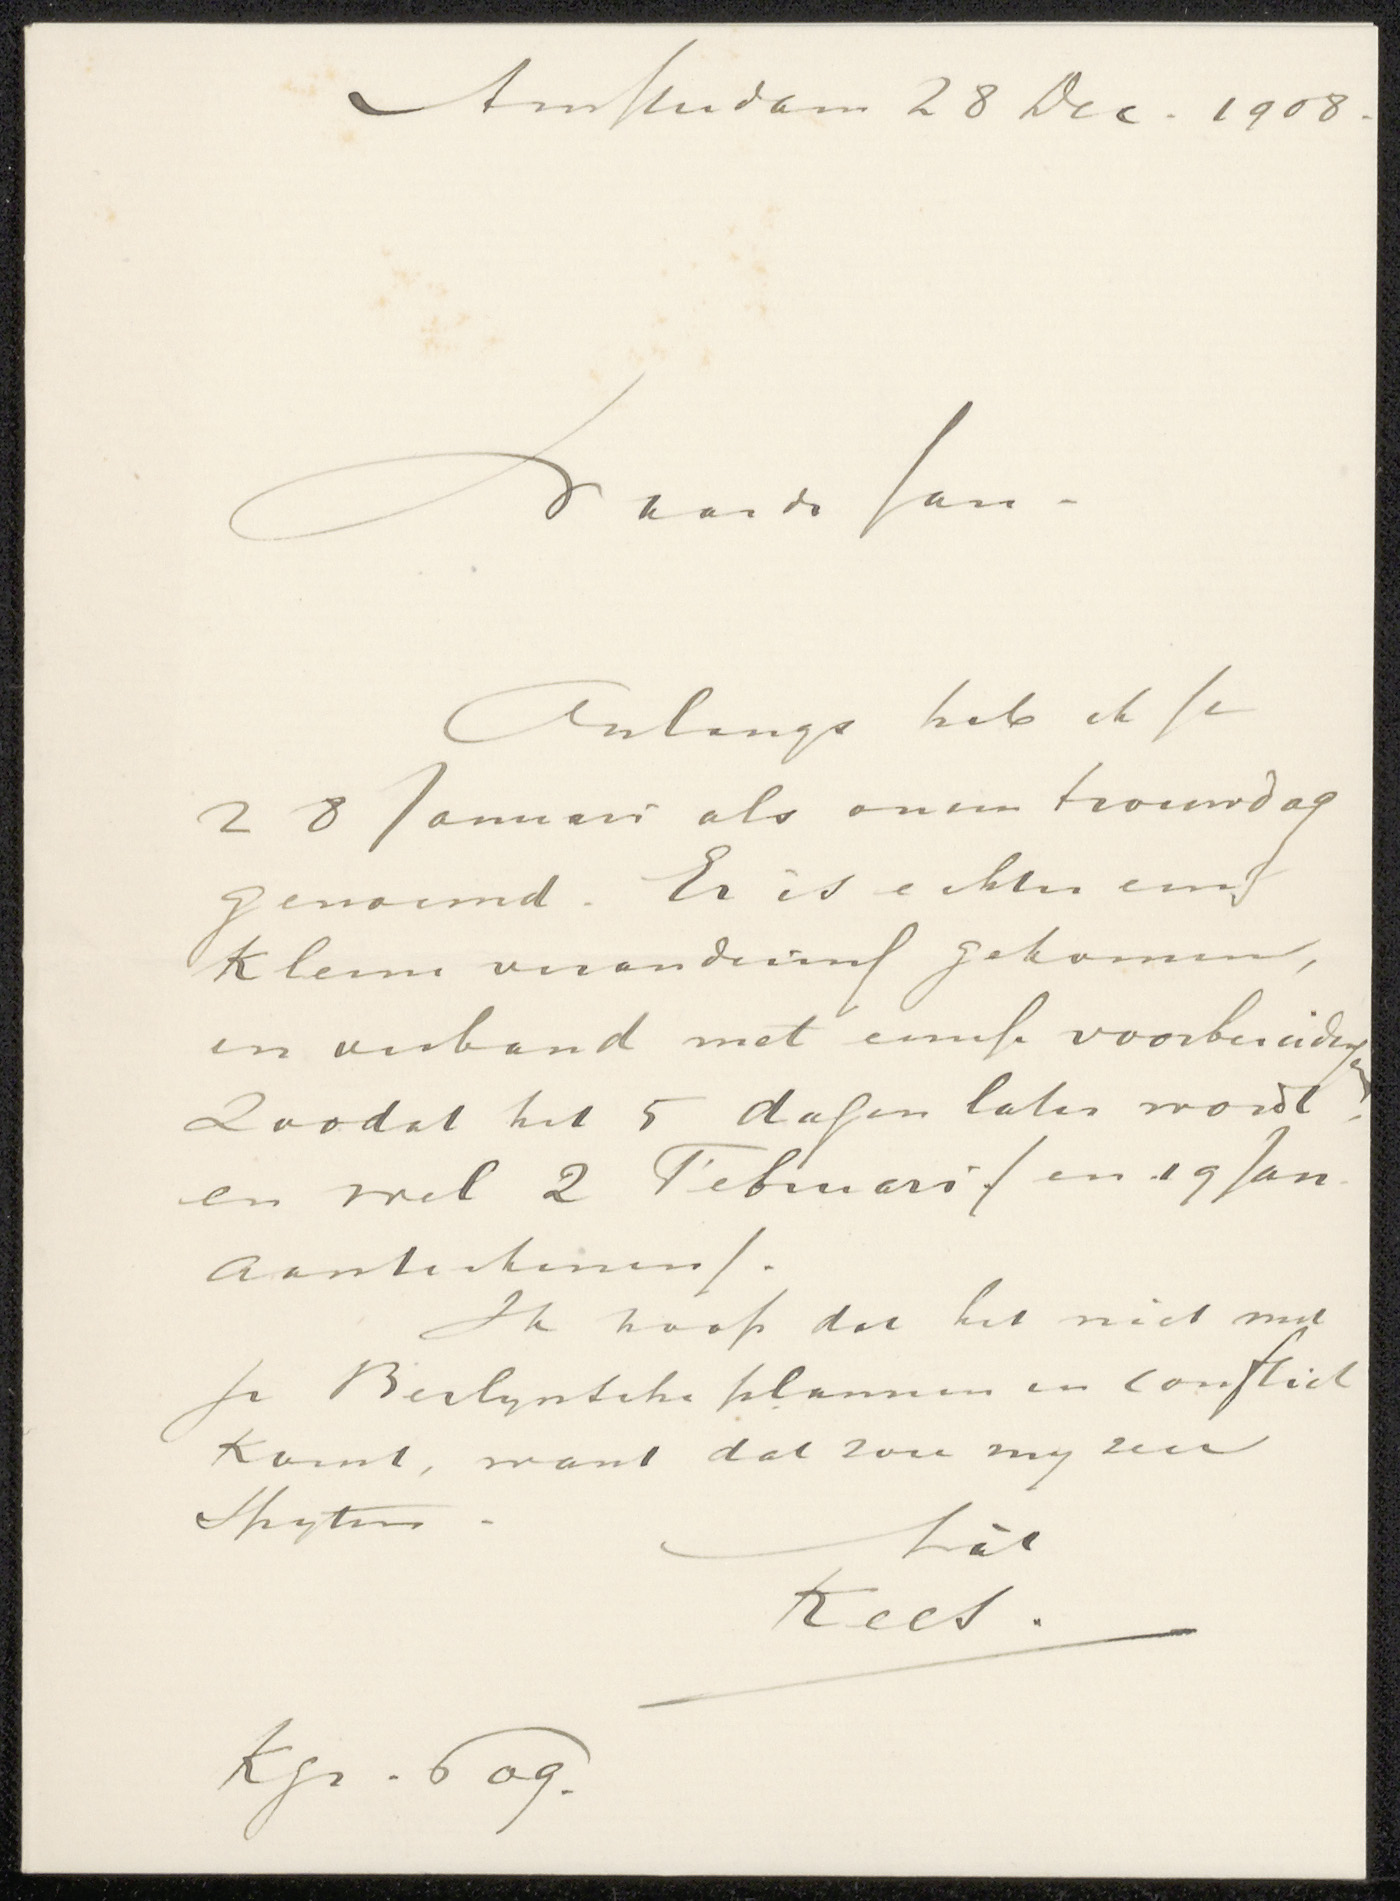 Amsterdam 28 Dec. 1908.
Waarde Jan -
Onlangs heb ik je
28 Januari als onzen trouwdag
genoemd. Er is echter eenig
kleine verandering gekomen,
in verband met eenige voorbereidingen
Zoodat het 5 dagen later wordt,
en wel 2 Februari / en 19 Jan.
aanteekening/.
Ik hoop dat het niet met
je Berlynsche plannen in conflict
komt, want dat zou my zeer
Spyten -
t.à.t
Kees.
Kgr. 609.